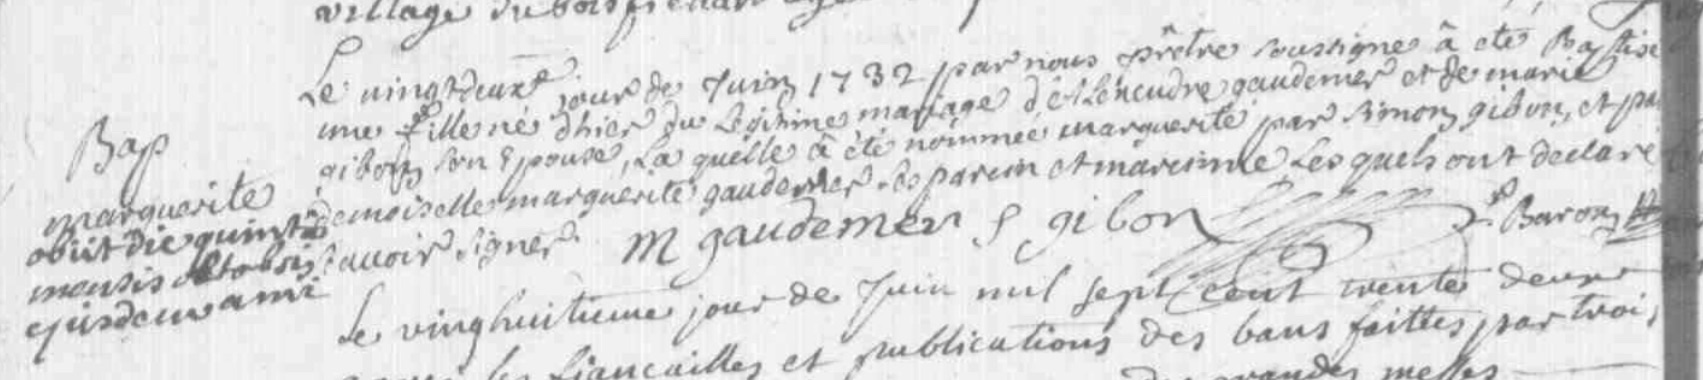 village du bois
Le vingtdeuxe jour de Juin 1732 par nous prêtre soussigné â eté Baptisé
une fille né d'hier du Légitime mariage d'Alexendre gaudemer et de marie
gibon son Epouse, La quelle â été nommée marguerite par Simon gibon, et par
demoiselle marguerite gaudemer ses parein et mareinne Lesquels ont declaré
sauoir signer. M gaudemer S gibon J. Baron
Bap
marguerite
obiit die quinta
mensis octobris
ejusdem anni
Le vinghuitieme jour de Juin mil sept cent trente deux
les fiancailles et publications des bans faittes par trois
grandes messes